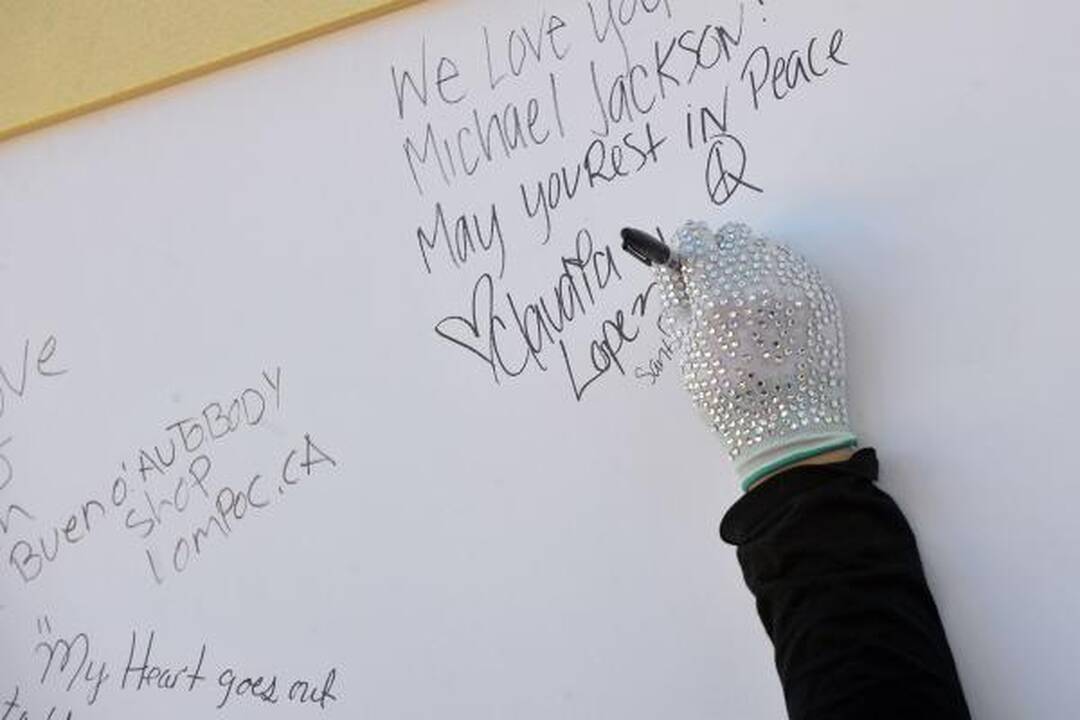 We Love You
Michael Jackson!
May you Rest in Peace
Claudia
Lopez
Sant
ove
Bueno' AUTOBODY
Shop
lompoc, CA
"My Heart goes out